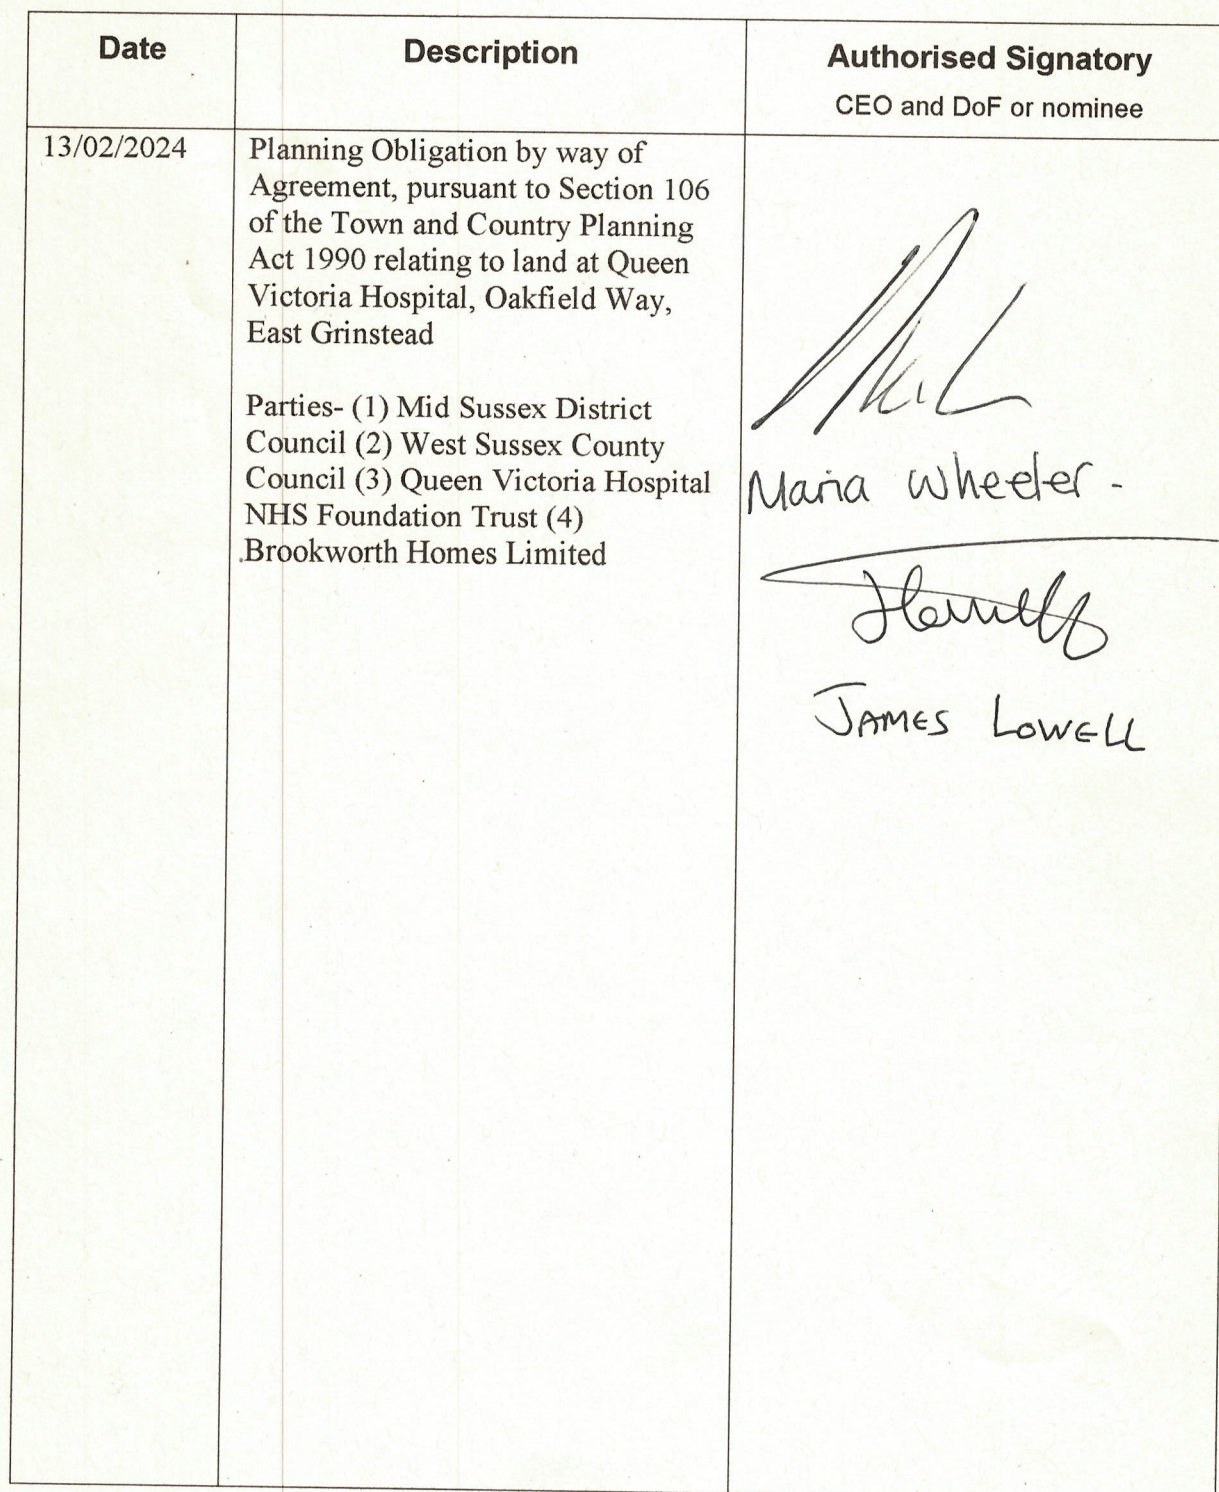 Date
Description
Authorised Signatory
CEO and DoF or nominee
13/02/2024
Planning Obligation by way of
Agreement, pursuant to Section 106
of the Town and Country Planning
Act 1990 relating to land at Queen
Victoria Hospital, Oakfield Way,
East Grinstead
Parties- (1) Mid Sussex District
Council (2) West Sussex County
Council (3) Queen Victoria Hospital
NHS Foundation Trust (4)
Brookworth Homes Limited
Maria Wheeler -
JAMES LOWELL